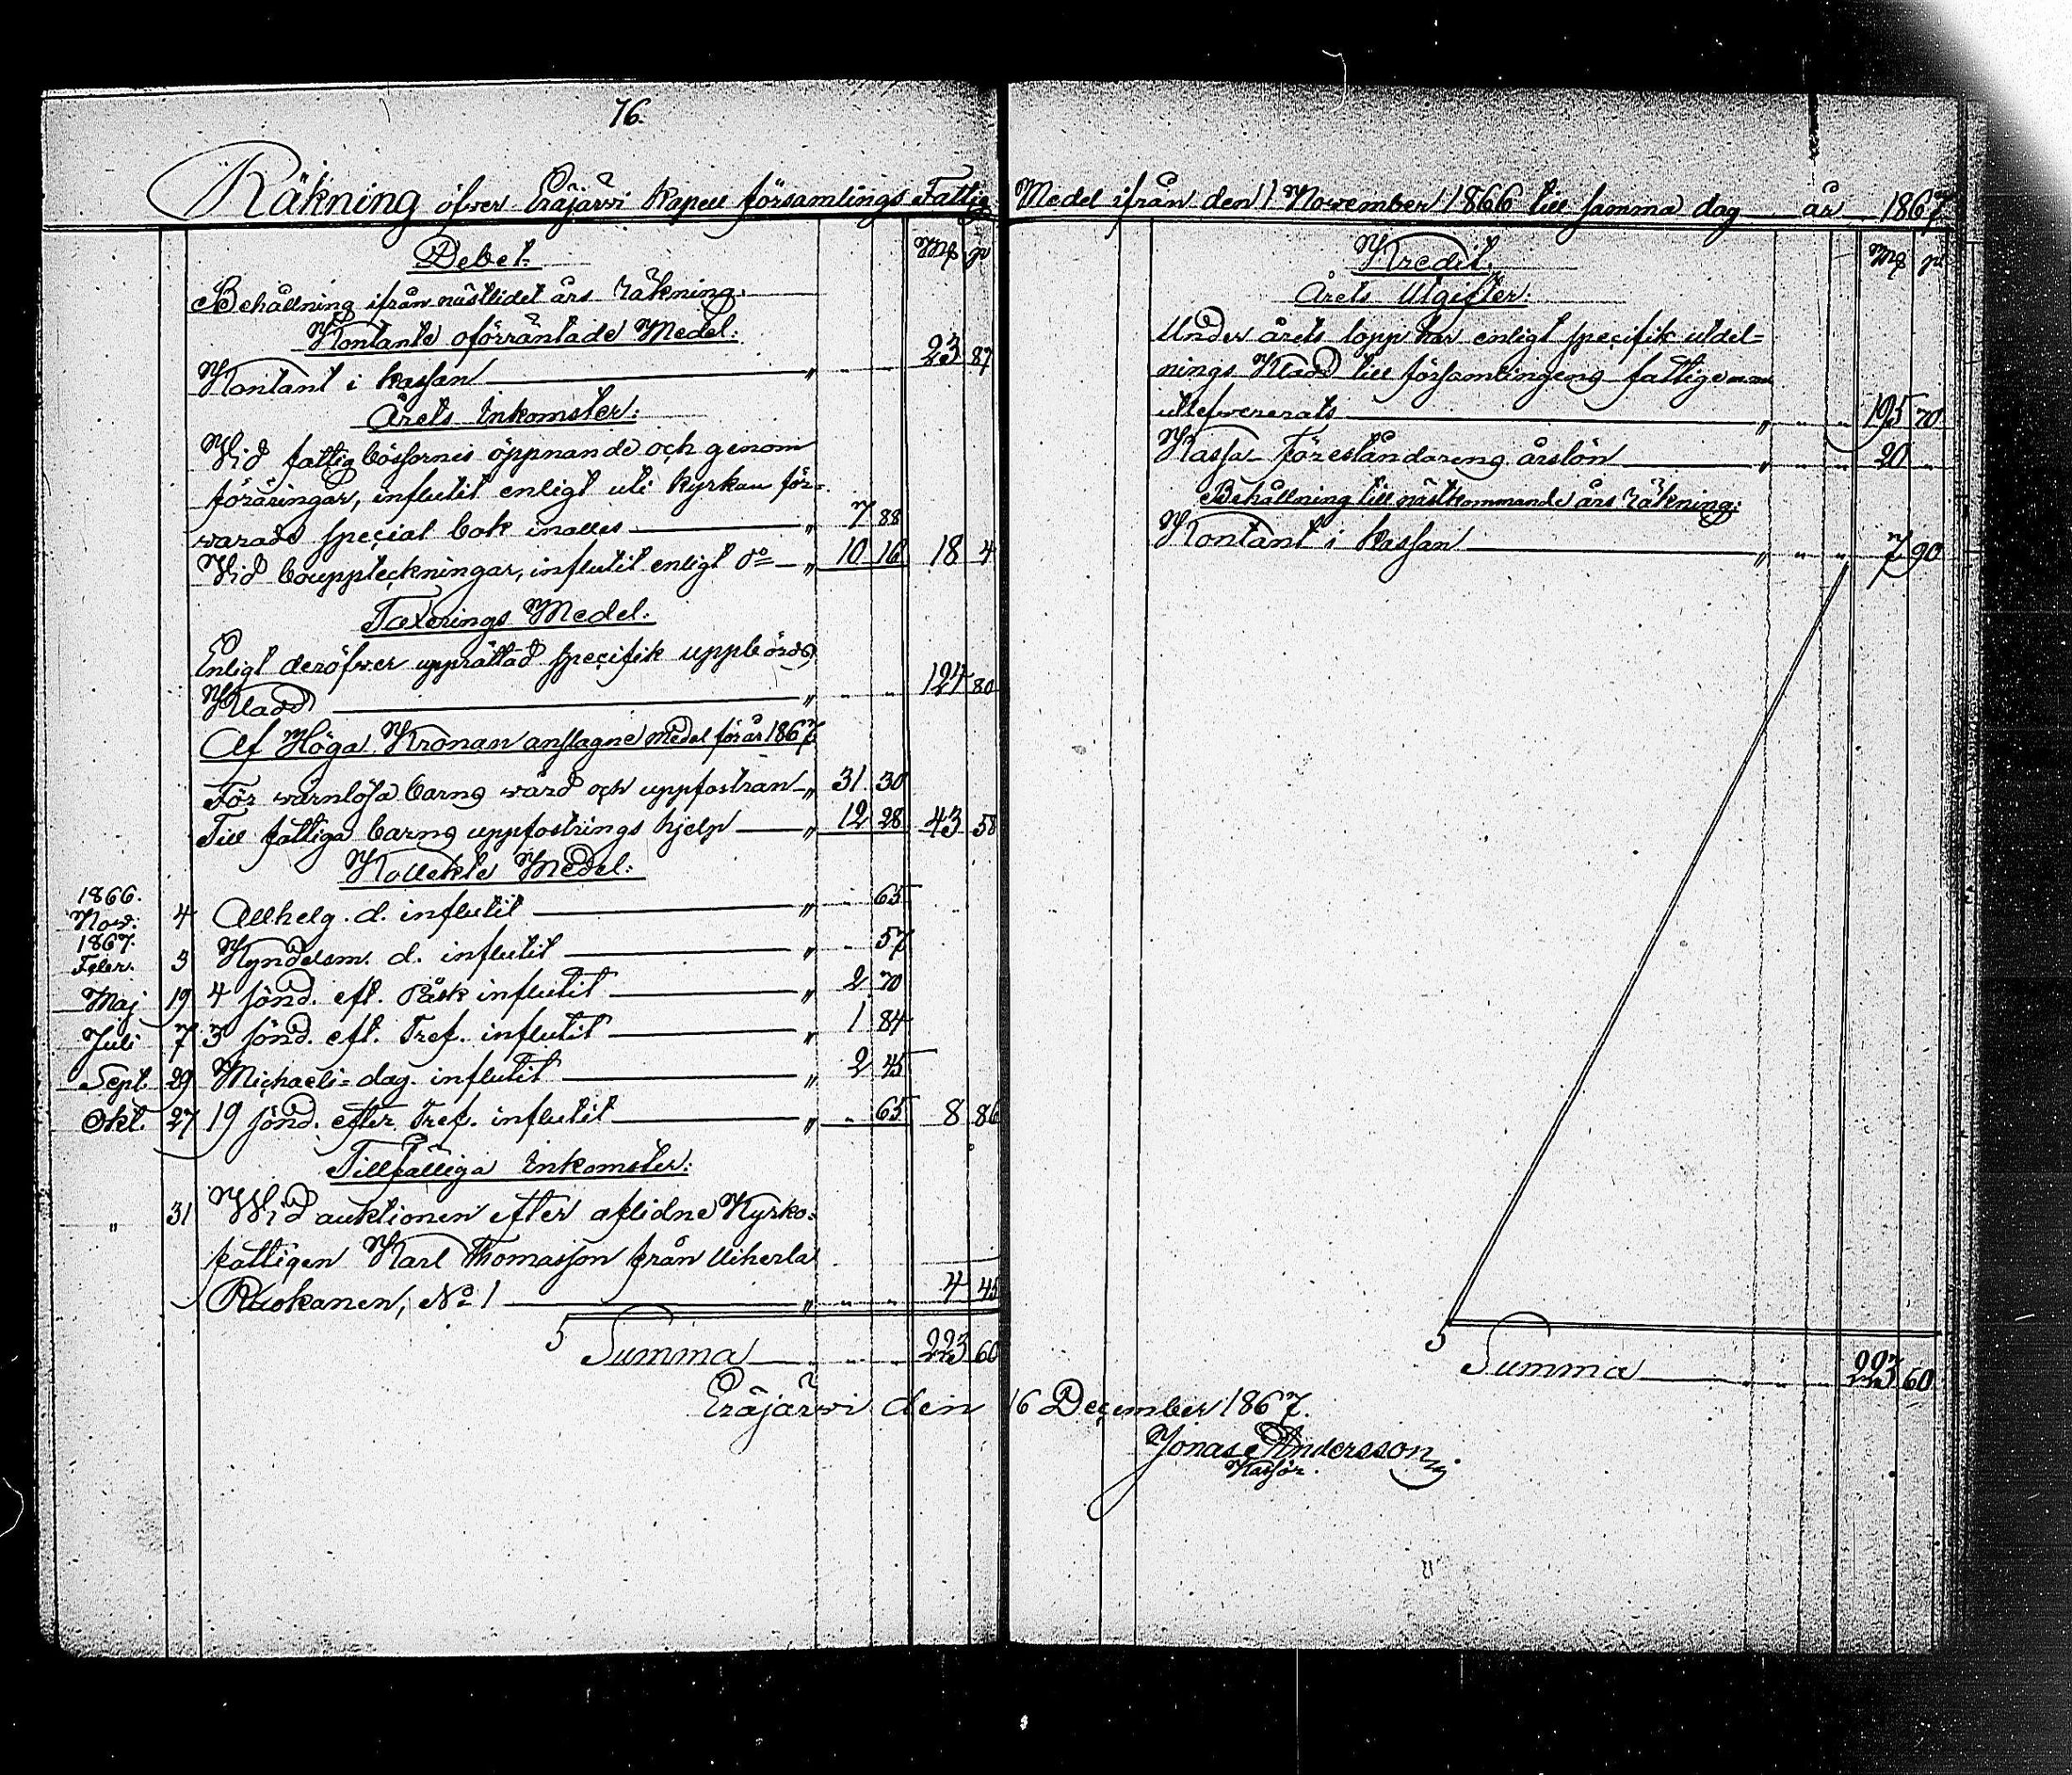 76.
Räkning öfwer Eräjärwi Kapell församlings Fattig Medel ifrån den 1 November 1866 till samma dag år 1867
Debet. Mk p
Behållning ifrån nästlidet års räkning.
Kontante oförräntade Medel:
Kontant i kassan " 23 87
Årets Inkomster:
Wid fattigbössornes öppnande och genom
föräringar, influtit enligt uti kyrkan för=
warade special bok inalles " 7 88
Wid bouppteckningar, influtit enligt do " 10 16 18 4
Taxerings Medel.
Enligt deröfwer upprättad specifik uppbörds
Kladd " 124 80
Af Höga Kronan anslagne medel för år 1867
För wärnlösa barns wård och uppfostran " 31 30
Till fattiga barns uppfostrings hjelp " 12 28 43 58
Kollekte Medel:
1866.
Nov. 4 Allhelg. d. influtit " 65
1867.
Febr. 3 Kyndelsm. d. influtit " 57
Maj 19 4 sönd. eft. Påsk influtit " 2 70
Juli 7 3 sönd. eft. Tref. influtit " 1 84
Sept. 29 Michaeli=dag. influtit " 2 45
Okt. 27 19 sönd. efter Tref. influtit " 65 8 86
Tillfälliga Inkomster:
" 31 Wid auktionen efter aflidne Kyrko=
fattigen Karl Thomasson från Uiherla
Ruokanen, No 1 " 4 45
Summa 223 60
Kredit. Mk p
Årets Utgifter:
Under årets lopp har enligt specifik utdel=
nings Kladd till församlingens fattige
utlefwererats " 195 70
Kassa Föreståndarens årslön " 20 "
Behållning till nästkommande års räkning:
Kontant i kassan " 7 90
Summa 223 60
Eräjärwi den 16 December 1867.
Jonas Andersson
Kassör.